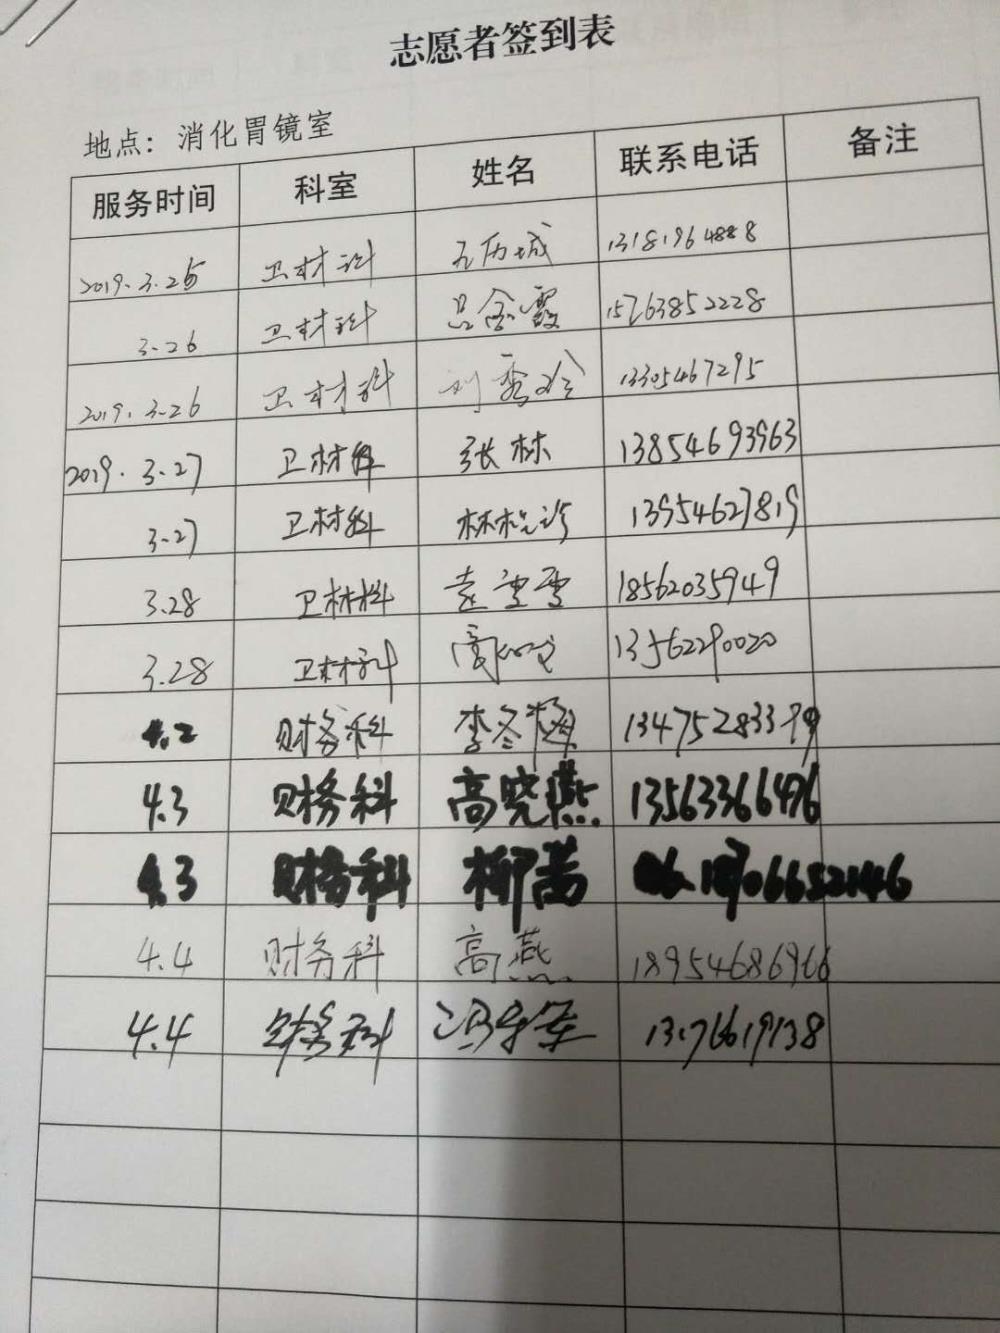 志愿者签到表
地点：消化胃镜室
服务时间 科室 姓名 联系电话 备注
2019.3.25 卫材科
3-26 卫材科 吕金霞 15763852228
2019.3-26 卫材科 刘秀玲 13305467295
2019.3-27 卫材科 张林 13854693963
3-27 卫材科 13954627819
3.28 卫材科 袁雪雪 18562035949
3.28 卫材科 13562290020
4.2 财务科 李冬梅
4.3 财务科 高晓燕 13563366496
4.3 财务科 柳茜
4.4 财务科 高燕 18954686966
4.4 财务科